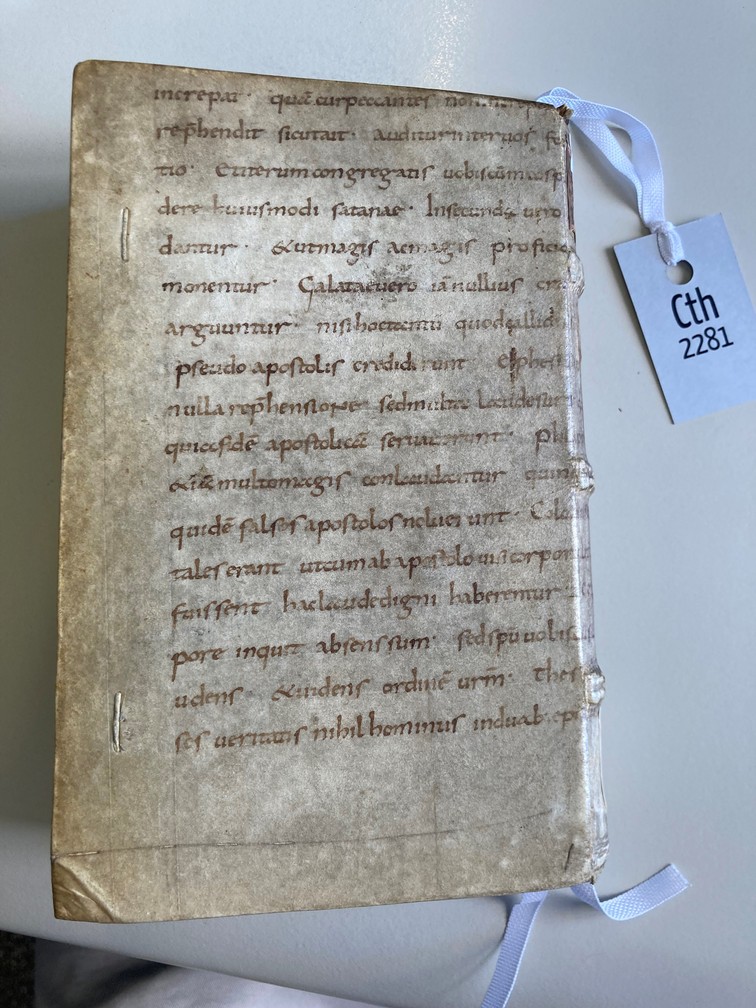 increpat · quia cur peccantes non
rep̄hendit sicut ait · auditur inter uos
tio · Et iterum congregatis uobis cum
dere huiusmodi satanae · In secunda uero
dantur · & ut magis ac magis
monentur · Galatae uero iā nullius
arguuntur · nisi hoc quod
pseudo apostolis crediderunt ·
nulla rep̄hensione sed multa
quia fidē apostolicā seruauerunt ·
& iā multo magis conlaudantur
quidē falsos apostolos noluerunt ·
tales erant ut cum ab apostolo
fuissent hac laude digni haberentur
pore inquit absens sum · sed sp̄u uobis
udens · & uidens ordinē urm̄ ·
ses ueritatis nihilhominus
Cth
2281